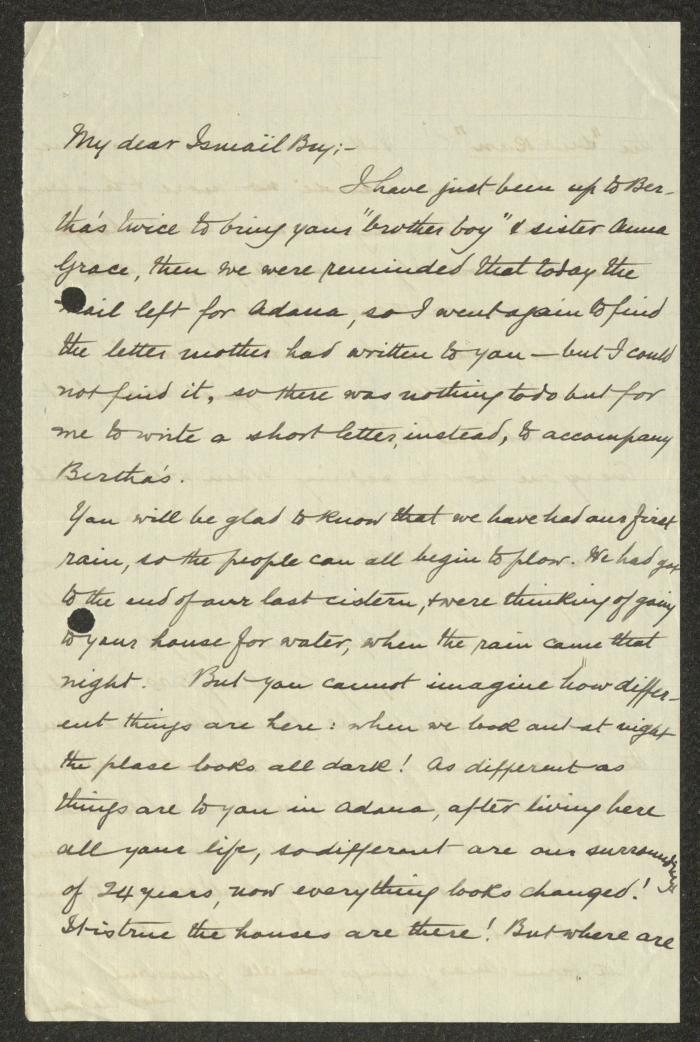 My dear Ismail Bey:-
I have just been up to Ber-
tha's twice to bring yours "brother boy" & sister Anna
Grace, then we were reminded that today the
mail left for Adana, so I went again to find
the letter mother had written to you – but I could
not find it, so there was nothing to do but for
me to write a short letter, instead, to accompany
Bertha's.
You will be glad to know that we have had our first
rain, so the people can all begin to plow. We had got
to the end of our last cistern, & were thinking of going
to your house for water, when the rain came that
night. But you cannot imagine how differ-
ent things are here: when we look out at night
the place looks all dark! As different as
things are to you in Adana, after living here
all your life, so different are our surroundings
of 24 years, now everything looks changed!
It is true the houses are there! But where are